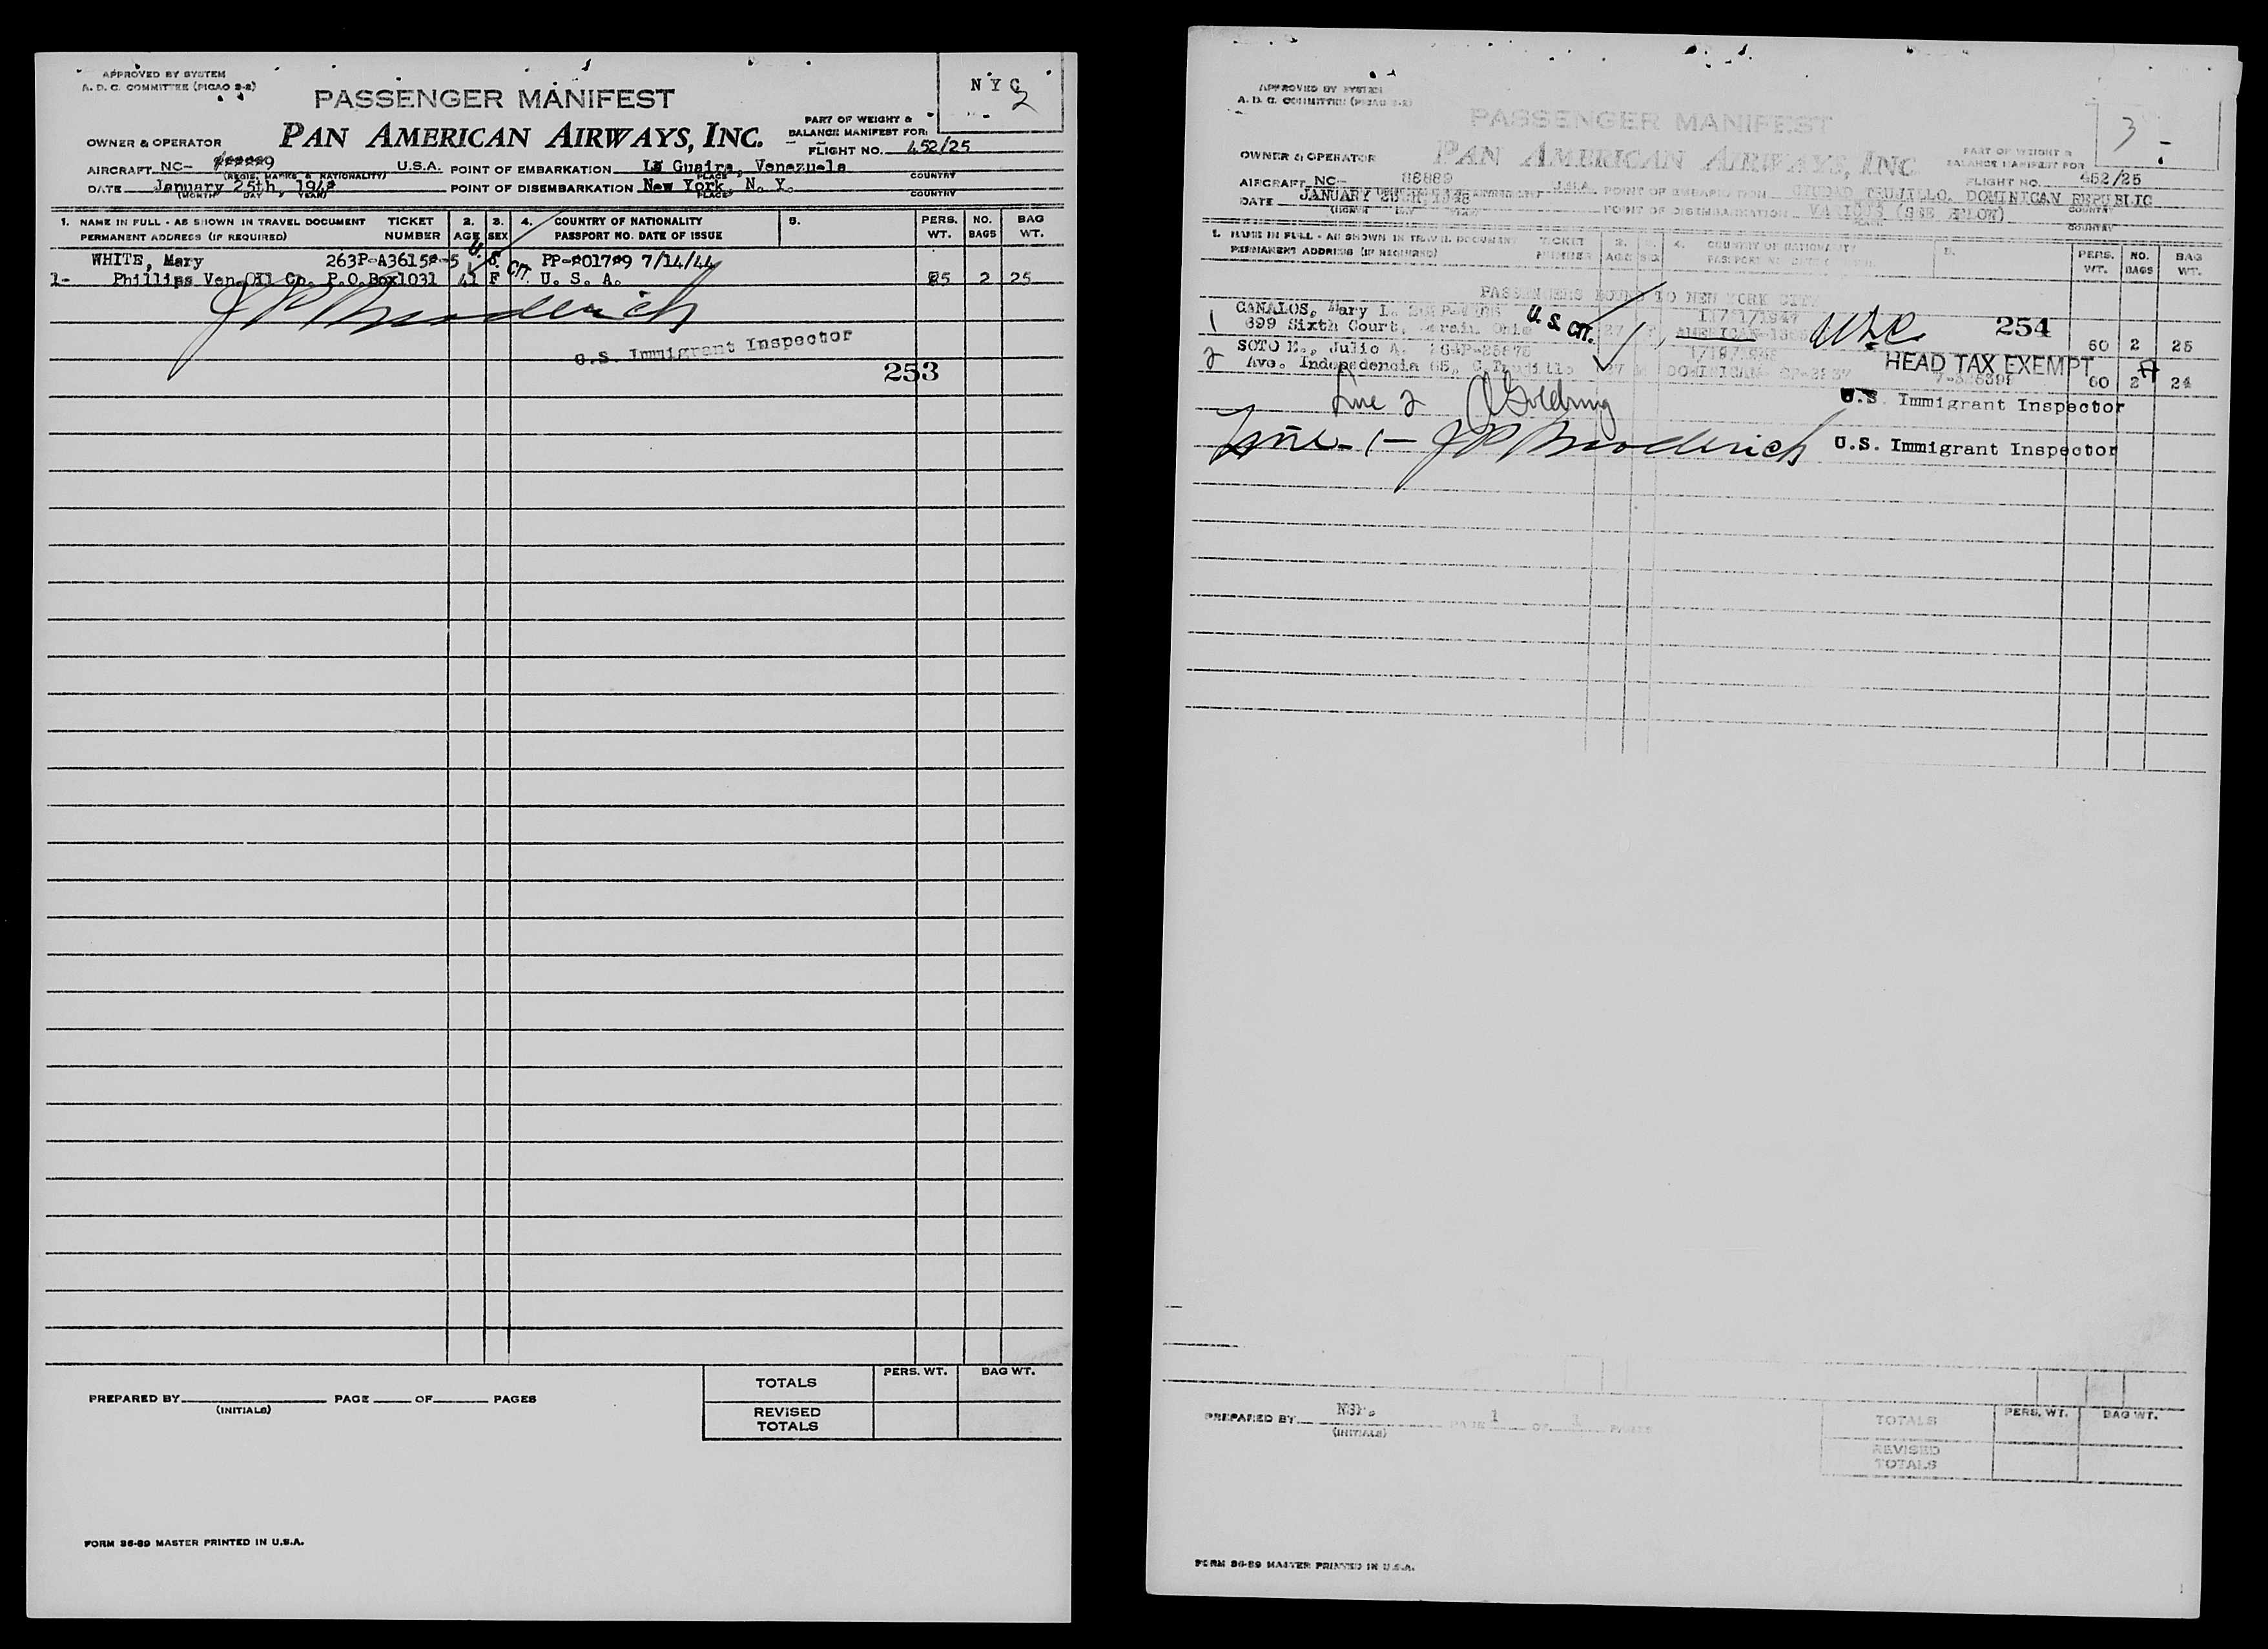 APPROVED BY SYSTEM
A. D. C. COMMITTEE (PICAO 2-2)
N Y C
2
PASSENGER MANIFEST
PAN AMERICAN AIRWAYS, INC.
PART OF WEIGHT &
BALANCE MANIFEST FOR:
OWNER & OPERATOR
FLIGHT NO. 452/25
AIRCRAFT NC- U.S.A. POINT OF EMBARKATION La Guaira, Venezuela
(REGIS. MARKS & NATIONALITY) PLACE COUNTRY
DATE January 25th, 1948 POINT OF DISEMBARKATION New York, N. Y.
(MONTH DAY YEAR) PLACE COUNTRY
1. NAME IN FULL - AS SHOWN IN TRAVEL DOCUMENT TICKET 2. 3. 4. COUNTRY OF NATIONALITY 5. PERS. NO. BAG
PERMANENT ADDRESS (IF REQUIRED) NUMBER AGE SEX PASSPORT NO. DATE OF ISSUE WT. BAGS WT.
U. S. CIT.
WHITE, Mary 7/14/44
1- Phillips Ven. Oil Co. P.O.Box1031 41 F U. S. A. 2 25
J P Broderick
U.S. Immigrant Inspector
253
TOTALS PERS. WT. BAG WT.
PREPARED BY PAGE OF PAGES
(INITIALS)
REVISED
TOTALS
FORM 36-89 MASTER PRINTED IN U.S.A.
APPROVED BY SYSTEM
A. D. C. COMMITTEE (PICAO 2-2)
3 -
PASSENGER MANIFEST
PAN AMERICAN AIRWAYS, INC
PART OF WEIGHT &
BALANCE MANIFEST FOR
OWNER & OPERATOR
FLIGHT NO. 452/25
AIRCRAFT NC- 88889 U.S.A. POINT OF EMBARKATION CIUDAD TRUJILLO, DOMINICAN REPUBLIC
DATE JANUARY 25TH, 1948 POINT OF DISEMBARKATION VARIOUS (SEE BELOW)
COUNTRY
1. NAME IN FULL - AS SHOWN IN TRAVEL DOCUMENT TICKET 2. 4. COUNTRY OF NATIONALITY 5. PERS. NO. BAG
PERMANENT ADDRESS (IF REQUIRED) NUMBER AGE WT. BAGS WT.
PASSENGERS BOUND TO NEW YORK CITY
1 CANALOS, Mary I. U. S. CIT. 254
699 Sixth Court, Ohio 27 AMERICAN 60 2 25
2 SOTO E., Julio A. HEAD TAX EXEMPT
Ave. Independencia 65, C.Trujillo 27 M DOMINICAN 60 2 24
Line 2 Goldring U.S. Immigrant Inspector
Line - 1 - J P Broderick U.S. Immigrant Inspector
PREPARED BY PAGE 1 OF 1 PAGES
(INITIALS)
TOTALS PERS. WT. BAG WT.
REVISED
TOTALS
FORM 36-89 MASTER PRINTED IN U.S.A.